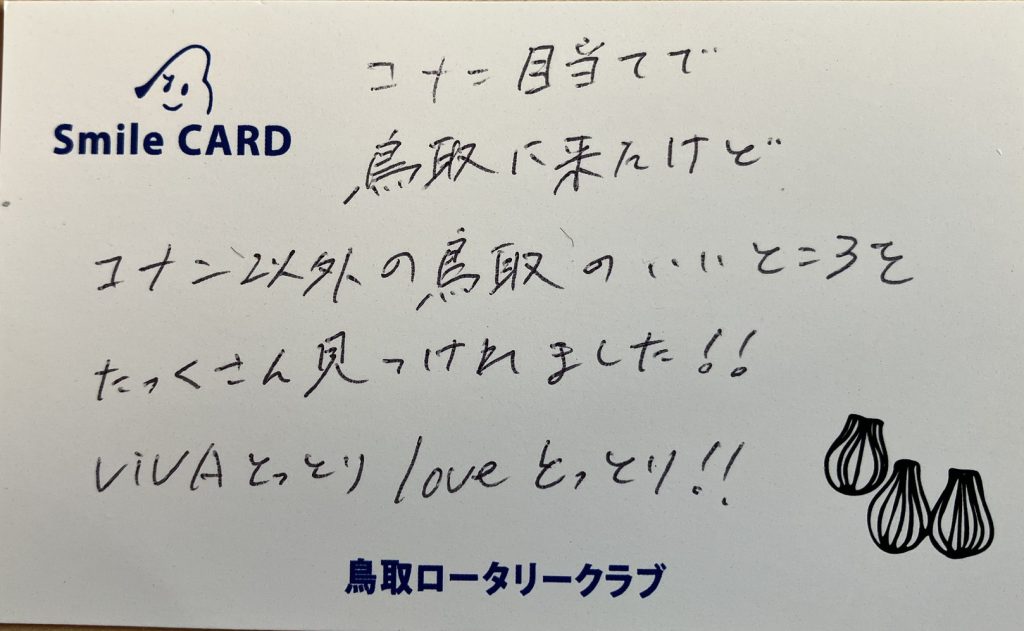 Smile CARD
コナン目当てで
鳥取に来たけど
コナン以外の鳥取のいいところを
たっくさん見つけれました!!
ViVAとっとり loveとっとり!!
鳥取ロータリークラブ